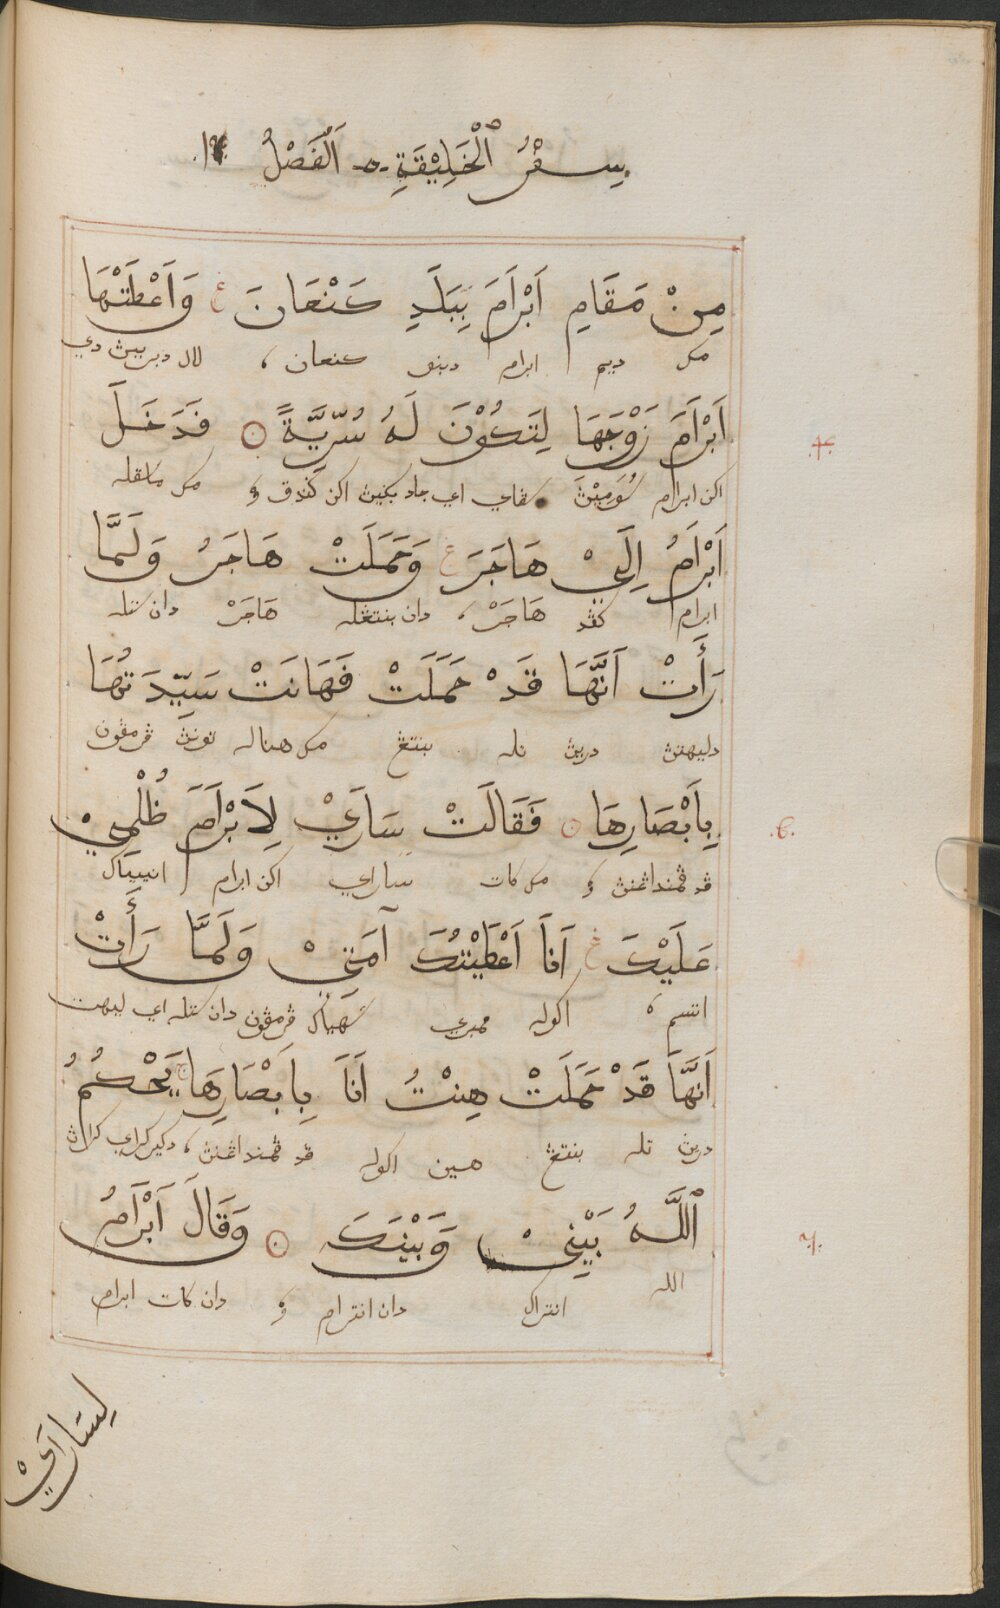 سِفْرُ ٱلْخَلِيْقَةِ ــ اَلْفَصْلُ ١٦
مِنْ مَقَامِ اَبْرَامَ بِبَلَدِ كَنْعَانَ وَاَعْطَتْهَا
مك ديم ابرام دبنو كنعان ، لال دبريڽ دي
اَبْرَامَ زَوْجَهَا لِتَكُوْنَ لَهُ سُرِّيَّةً فَدَخَلَ
اكن ابرام سُوَمِيْڽَ سڤاي اي جاد بكيڽ اكن ݢندق مك ماسقله
اَبْرَامُ اِلَيْ هَاجَرَ وَحَمَلَتْ هَاجَرُ وَلَمَّا
ابرام كڤد هَاجَرْ ، دان بنتڠله هَاجَرْ دان ستله
رَأَتْ اَنَّهَا قَدْ حَمَلَتْ فَهَانَتْ سَيِّدَتُهَا
دليهتڽ درڽ تله بنتڠ مك هيناله تونڽ ڤرمڤون
بِاَبْصَارِهَا فَقَالَتْ سَارَيْ لِاَبْرَامَ ظُلْمِيْ
ڤد ڤمنداڠنڽ مك كات سَاراي اكن ابرام انيياك
عَلَيْكَ اَنَا اَعْطَيْتُكَ آمَتِيْ وَلَمَّا رَأَتْ
اتسم ، اكوله ممبري سَهَياك ڤرمڤون دان ستله اي ليهت
اَنَّهَا قَدْ حَمَلَتْ هِنْتُ اَنَا بِاَبْصَارِهَا يَحْكُمُ
درڽ تله بنتڠ هين اكوله ڤد ڤمنداڠنڽ ،
ٱللّٰهُ بَيْنِيْ وَبَيْنَكَ وَقَالَ اَبْرَامُ
الله انتراك دان انترام دان كات ابرام
لِسَارَيْ